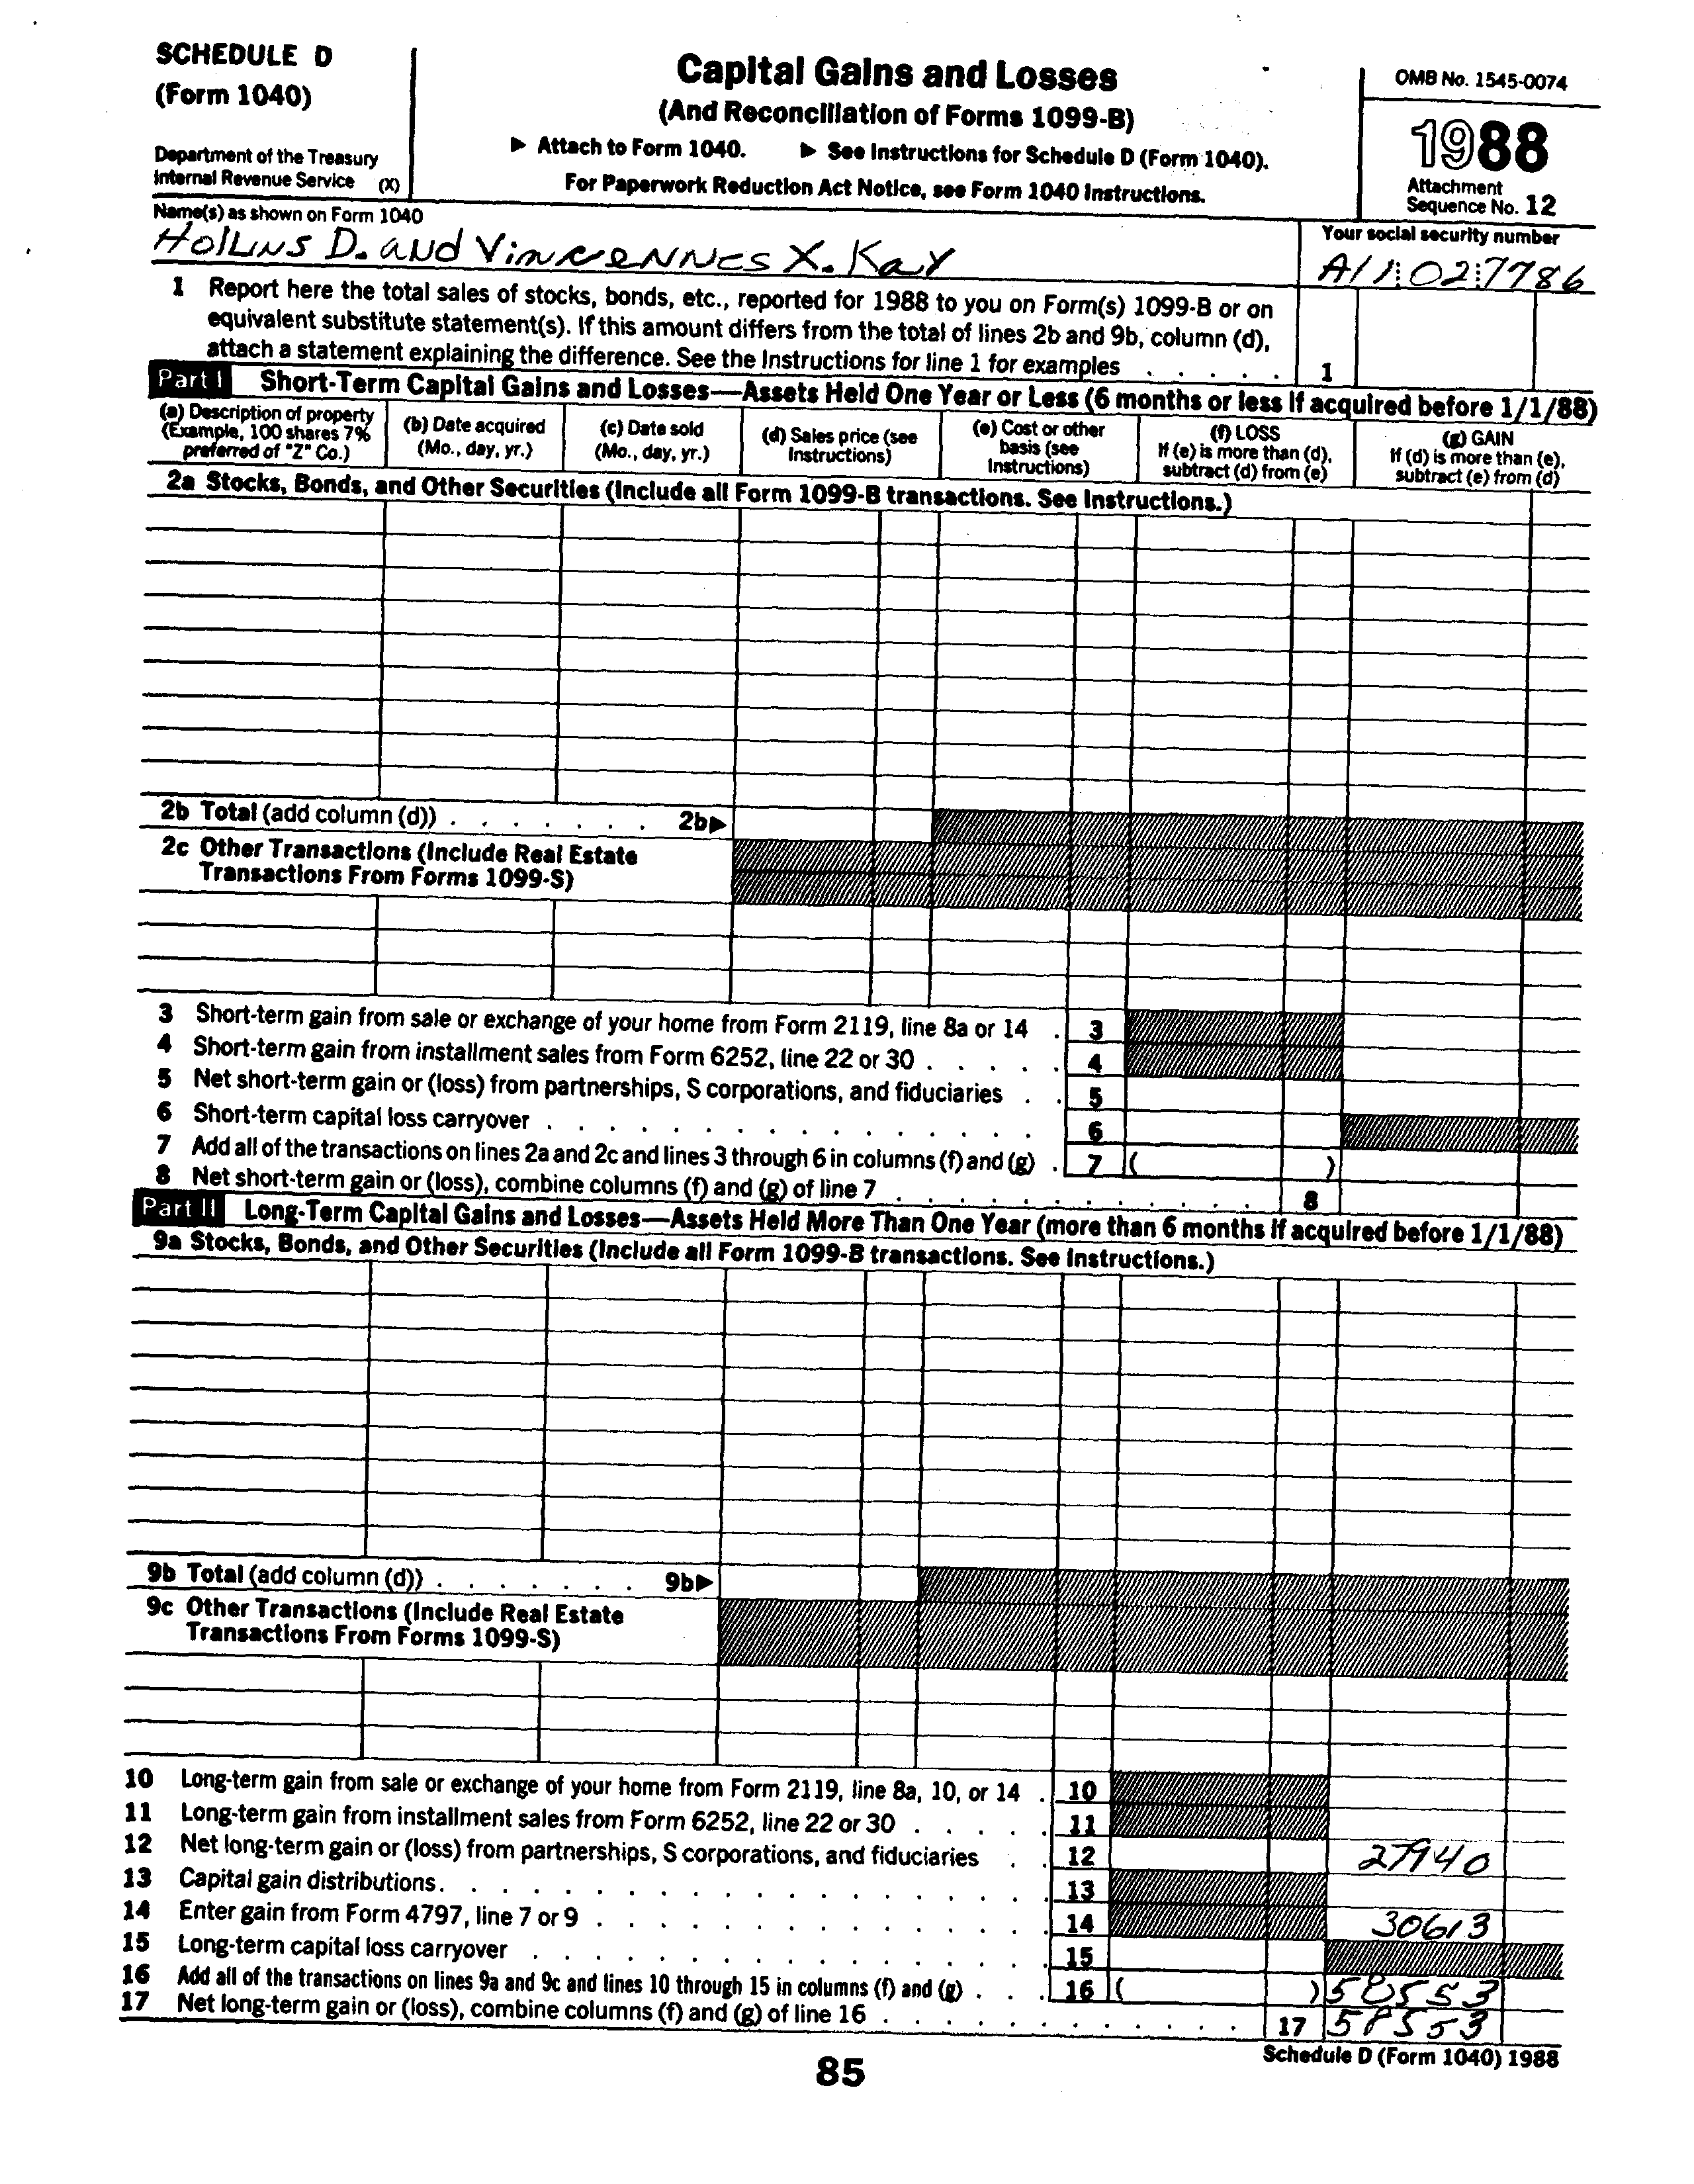 SCHEDULE D
(Form 1040)
Department of the Treasury
Internal Revenue Service (X)
Capital Gains and Losses
(And Reconciliation of Forms 1099-B)
▶ Attach to Form 1040. ▶ See Instructions for Schedule D (Form 1040).
For Paperwork Reduction Act Notice, see Form 1040 Instructions.
OMB No. 1545-0074
1988
Attachment
Sequence No. 12
Name(s) as shown on Form 1040
Your social security number
Hollins D. and Vincennes X. Kay
A11:02:7786
1 Report here the total sales of stocks, bonds, etc., reported for 1988 to you on Form(s) 1099-B or on
equivalent substitute statement(s). If this amount differs from the total of lines 2b and 9b, column (d),
attach a statement explaining the difference. See the Instructions for line 1 for examples . . . . . 1
Part I Short-Term Capital Gains and Losses—Assets Held One Year or Less (6 months or less if acquired before 1/1/88)
(a) Description of property
(Example, 100 shares 7%
preferred of "Z" Co.)
(b) Date acquired
(Mo., day, yr.)
(c) Date sold
(Mo., day, yr.)
(d) Sales price (see
Instructions)
(e) Cost or other
basis (see
Instructions)
(f) LOSS
If (e) is more than (d),
subtract (d) from (e)
(g) GAIN
If (d) is more than (e),
subtract (e) from (d)
2a Stocks, Bonds, and Other Securities (Include all Form 1099-B transactions. See Instructions.)
2b Total (add column (d)) . . . . . . . 2b▶
2c Other Transactions (Include Real Estate
Transactions From Forms 1099-S)
3 Short-term gain from sale or exchange of your home from Form 2119, line 8a or 14 . 3
4 Short-term gain from installment sales from Form 6252, line 22 or 30 . . . . . 4
5 Net short-term gain or (loss) from partnerships, S corporations, and fiduciaries . . 5
6 Short-term capital loss carryover . . . . . . . . . . . . . . . . 6
7 Add all of the transactions on lines 2a and 2c and lines 3 through 6 in columns (f) and (g) . 7 ( )
8 Net short-term gain or (loss), combine columns (f) and (g) of line 7 . . . . . . . . . . . . . 8
Part II Long-Term Capital Gains and Losses—Assets Held More Than One Year (more than 6 months if acquired before 1/1/88)
9a Stocks, Bonds, and Other Securities (Include all Form 1099-B transactions. See Instructions.)
9b Total (add column (d)) . . . . . . . 9b▶
9c Other Transactions (Include Real Estate
Transactions From Forms 1099-S)
10 Long-term gain from sale or exchange of your home from Form 2119, line 8a, 10, or 14 . 10
11 Long-term gain from installment sales from Form 6252, line 22 or 30 . . . . . 11
12 Net long-term gain or (loss) from partnerships, S corporations, and fiduciaries . . 12 27940
13 Capital gain distributions . . . . . . . . . . . . . . . . . . . 13
14 Enter gain from Form 4797, line 7 or 9 . . . . . . . . . . . . . . 14 30613
15 Long-term capital loss carryover . . . . . . . . . . . . . . . . 15
16 Add all of the transactions on lines 9a and 9c and lines 10 through 15 in columns (f) and (g) . . . 16 ( ) 58553
17 Net long-term gain or (loss), combine columns (f) and (g) of line 16 . . . . . . . . . . . . . 17 58553
Schedule D (Form 1040) 1988
85